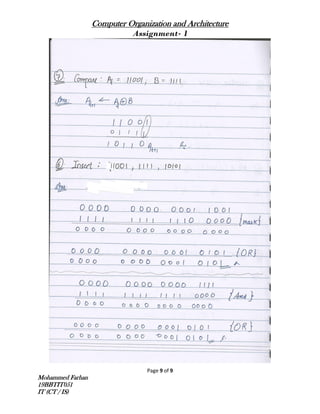 Computer Organization and Architecture
Assignment- 1
⑦ Compare : A = 11001, B = 1111
Ans A ← A⊕B
1 1 0 0 1
0 1 1 1 1
1 0 1 1 0
⑧ Insert : 11001, 1111, 10101
Ans
0 0 0 0 0 0 0 0 0 0 0 1 1 0 0 1
1 1 1 1 1 1 1 1 1 1 1 0 0 0 0 0 {mask}
0 0 0 0 0 0 0 0 0 0 0 0 0 0 0 0
0 0 0 0 0 0 0 0 0 0 0 1 0 1 0 1 {OR}
0 0 0 0 0 0 0 0 0 0 0 1 0 1 0 1
0 0 0 0 0 0 0 0 0 0 0 0 1 1 1 1
1 1 1 1 1 1 1 1 1 1 1 1 0 0 0 0 {Ans}
0 0 0 0 0 0 0 0 0 0 0 0 0 0 0 0
0 0 0 0 0 0 0 0 0 0 0 1 0 1 0 1 {OR}
0 0 0 0 0 0 0 0 0 0 0 1 0 1 0 1
Page 9 of 9
Mohammed Farhan
19BBTIT051
IT (CT / IS)